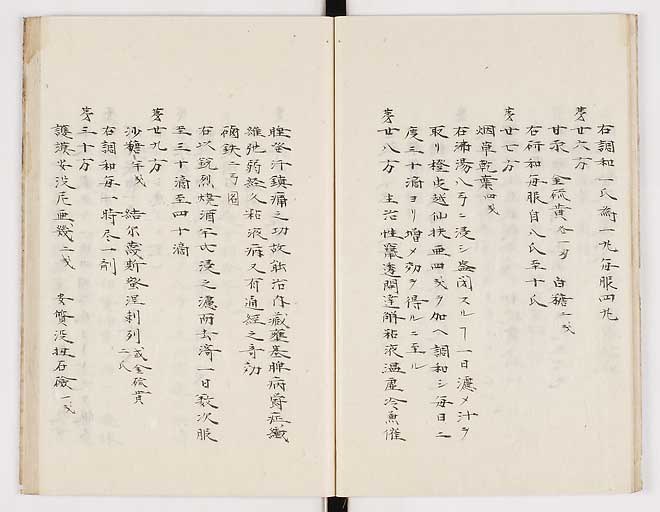 右調和一氏為一丸毎服四丸
芽廿六方
甘汞 金硫黄各一弓 白糖二戔
右研和毎服自八氏至十氏
芽廿七方
烟草乾葉四戔
右沸湯八弓ニ浸シ盖閉スルヿ一日濾メ汁ヲ
取リ橙皮越仙扶亜四戔ヲ加ヘ調和シ毎日二
度三十滴ヨリ増メ効ヲ得ルニ至ル
芽廿八方 主治性竄透開達解粘液温虚冷兼催
発汗鎮痛之功故能治内蔵壅塞脾病欝症繊
維弛弱経久粘液病又有通経之奇効
磠鉄二弓
右以鋭烈焼酒不七浸之濾而去滓一日数次服
至三十滴至四十滴
芽廿九方
沙糖半戔 結尓蔑斯蛮涅剌列 或金硫黄
二氏
右調和毎一時尽一剤
芽三十方
護謨安没尼亜幾二戔 勿搦没担石鹸一戔